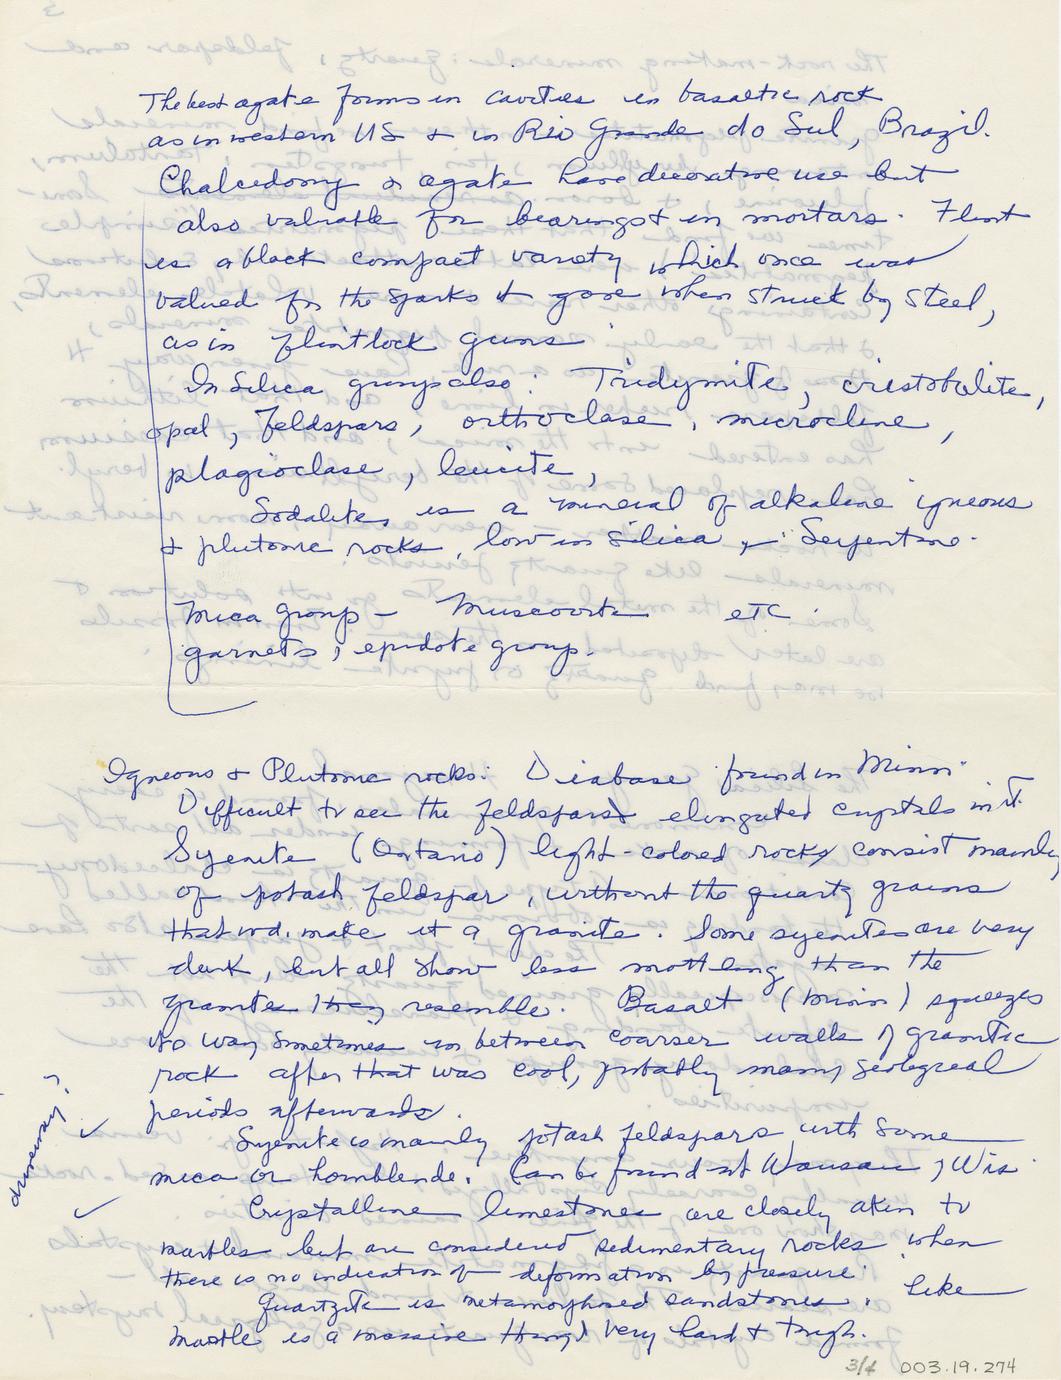 The best agate forms in cavities in basaltic rock
as in western US & in Rio Grande do Sul, Brazil.
Chalcedony & agate have decorative use but
also valuable for bearings & in mortars. Flint
is a black compact variety which once was
valued for the sparks it gave when struck by steel,
as in flintlock guns
In Silica group also: Tridymite, cristobalite,
opal, Feldspars, orthoclase, microcline,
plagioclase, leucite,
Sodalite, is a mineral of alkaline igneous
& plutonic rocks, low in silica, Serpentine.
Mica Group - Muscovite etc.
garnets, epidote group.
Igneous & Plutonic rocks: Diabase found in Minn
Difficult to see the feldspars elongated crystals in it.
Syenite (Ontario) light-colored rocks consist mainly
of potash feldspar, without the quartz grains
that wd. make it a granite. Some syenites are very
dark, but all show less mottling than the
granites they resemble. Basalt (Minn) squeezes
its way sometimes in between coarser walls of granitic
rock after that was cool, probably many geological
periods afterwards.
Syenite is mainly potash feldspars with some
mica or hornblende. Can be found at Wausau, Wis
Crystalline limestones are closely akin to
marbles but are considered sedimentary rocks when
there is no indication of deformation by pressure.
Quartzite is metamorphosed sandstones. Like
marble is a massive thing! Very hard & tough.
3/4 003.19.274